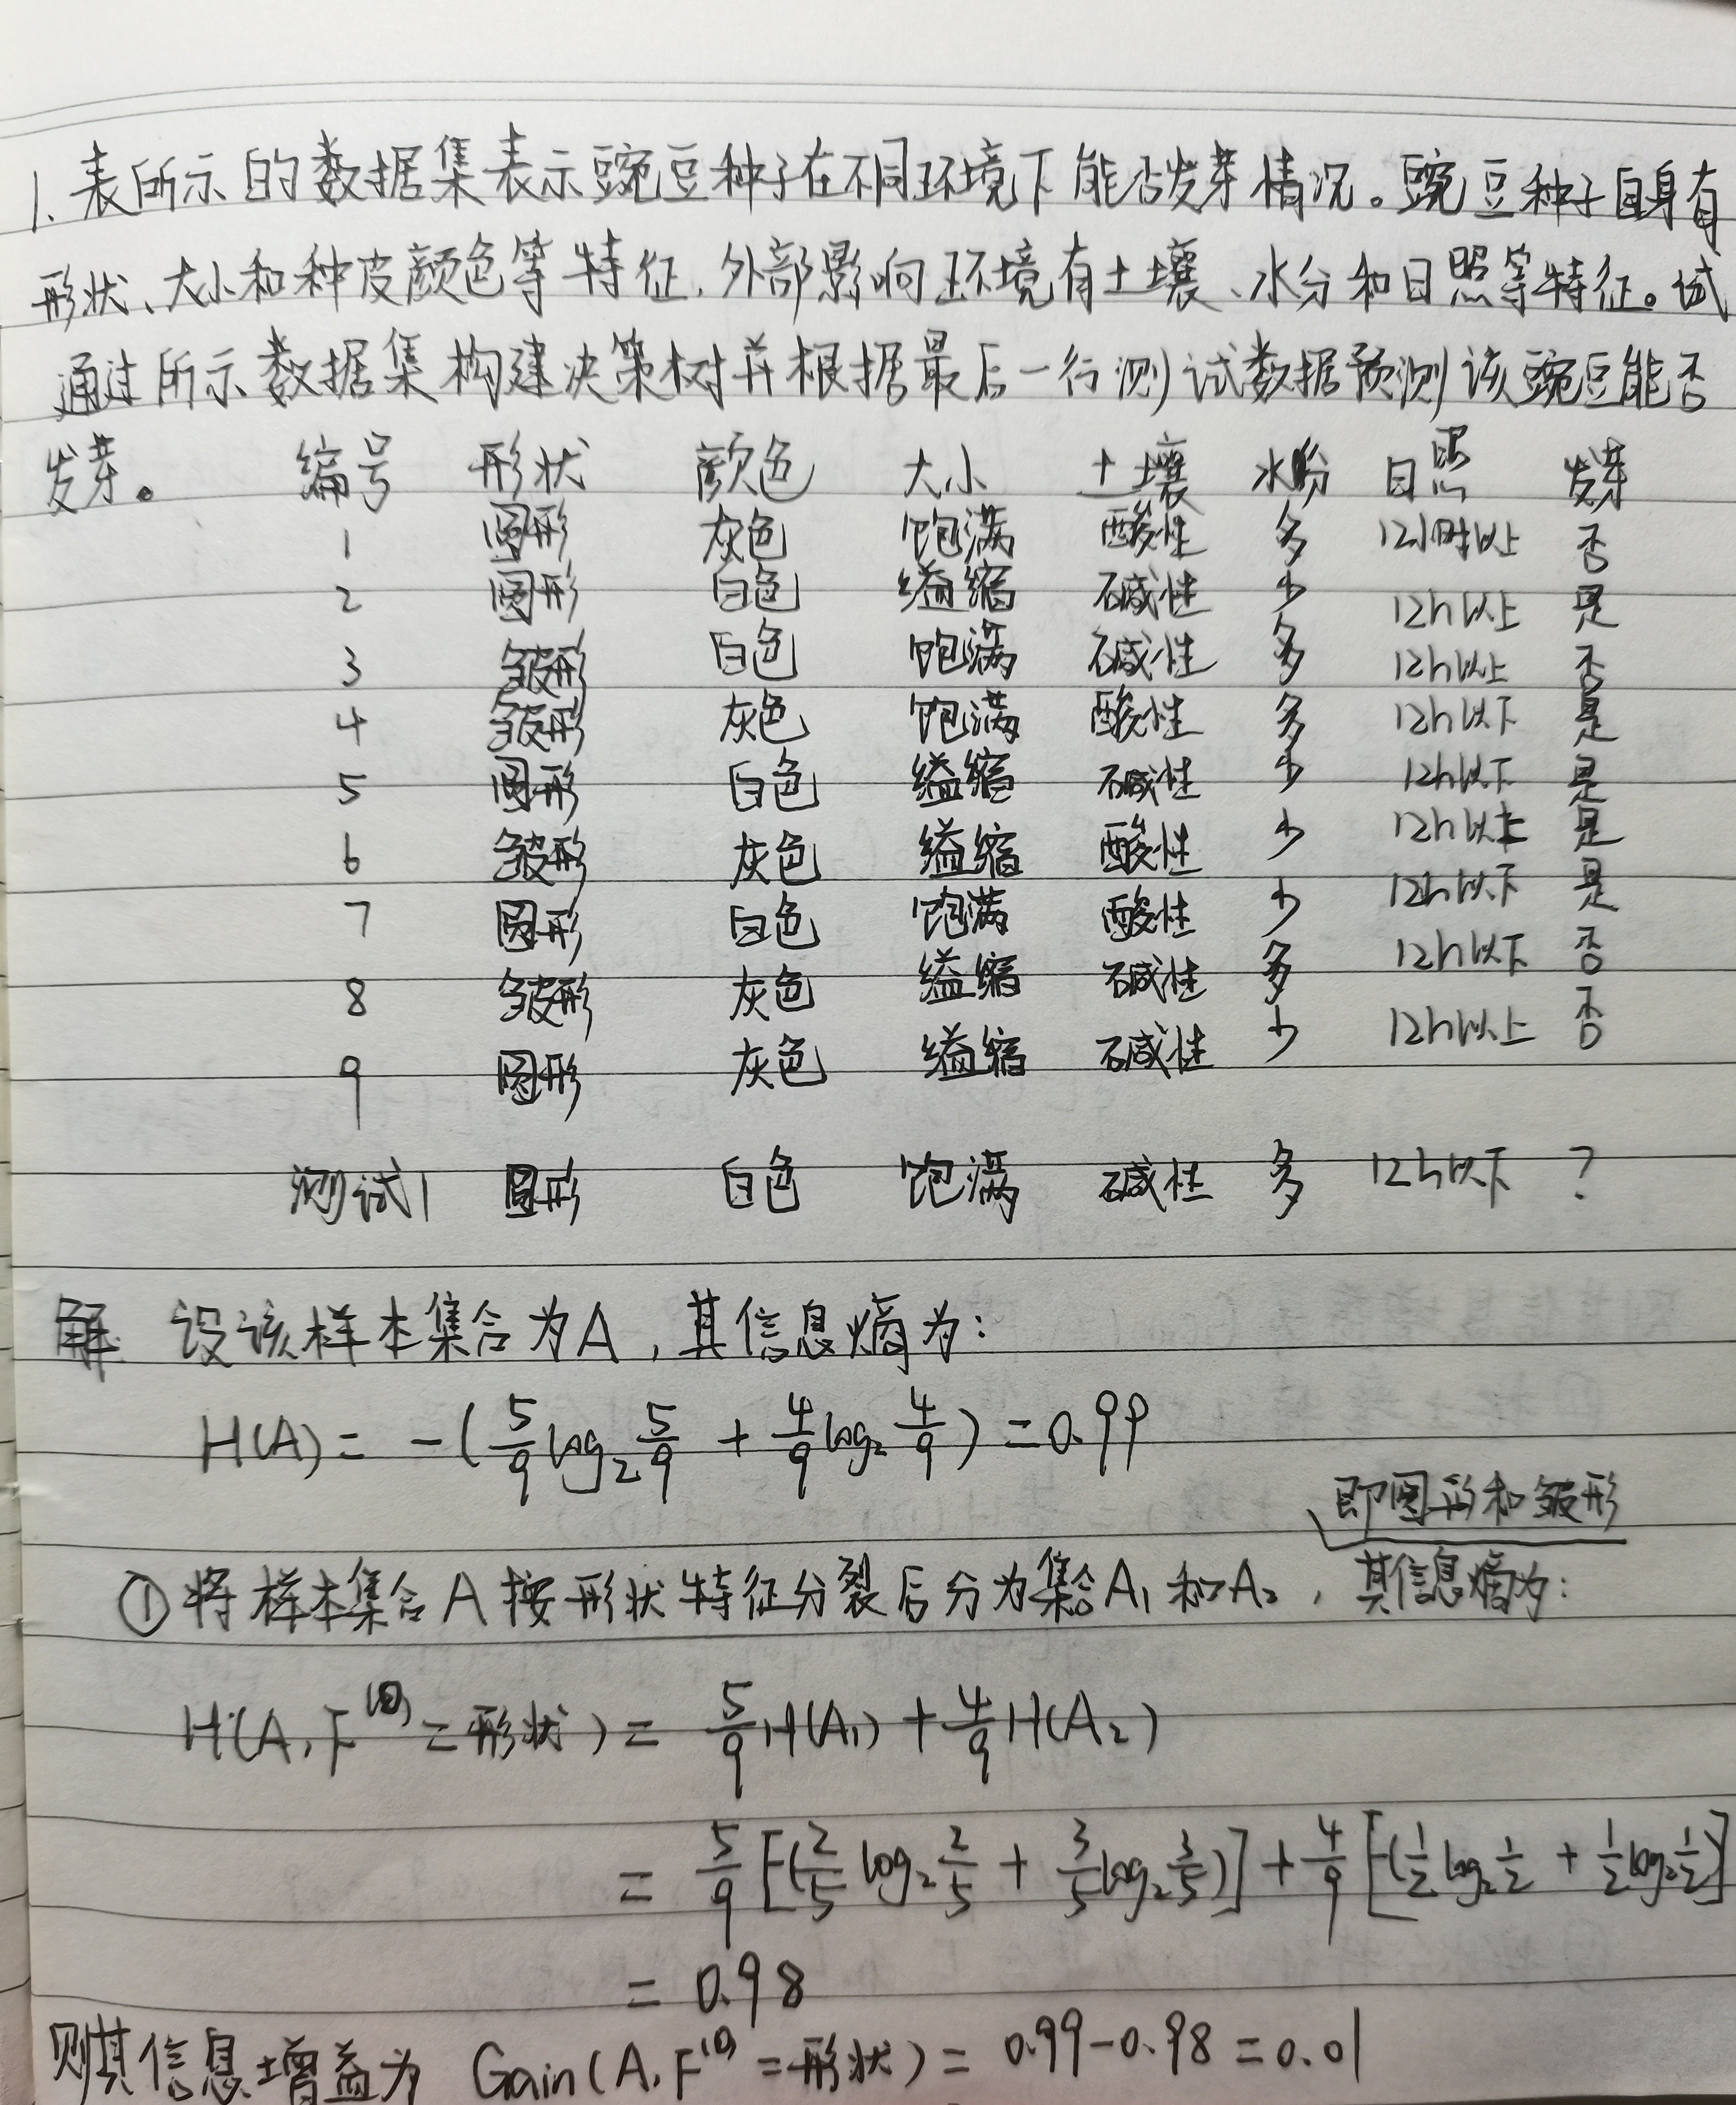 1. 表所示的数据集表示豌豆种子在不同环境下能否发芽情况。豌豆种子自身有
形状、大小和种皮颜色等特征,外部影响环境有土壤、水分和日照等特征。试
通过所示数据集构建决策树并根据最后一行测试数据预测该豌豆能否
发芽。 编号 形状 颜色 大小 土壤 水份 日照 发芽
1 圆形 灰色 饱满 酸性 多 12小时以上 否
2 圆形 白色 缢缩 碱性 少 12h以上 是
3 皱形 白色 饱满 碱性 多 12h以上 否
4 皱形 灰色 饱满 酸性 多 12h以下 是
5 圆形 白色 缢缩 碱性 少 12h以下 是
6 皱形 灰色 缢缩 酸性 少 12h以上 是
7 圆形 白色 饱满 酸性 少 12h以下 是
8 皱形 灰色 缢缩 碱性 多 12h以下 否
9 圆形 灰色 缢缩 碱性 少 12h以上 否
测试1 圆形 白色 饱满 碱性 多 12h以下 ?
解 设该样本集合为A,其信息熵为:
H(A) = -(5/9 log₂ 5/9 + 4/9 log₂ 4/9) = 0.99
即圆形和皱形
① 将样本集合A按形状特征分裂后分为集合A₁和A₂,其信息熵为:
H(A, F = 形状) = 5/9 H(A₁) + 4/9 H(A₂)
= 5/9 [-(2/5 log₂ 2/5 + 3/5 log₂ 3/5)] + 4/9 [-(1/2 log₂ 1/2 + 1/2 log₂ 1/2)]
= 0.98
则其信息增益为 Gain(A, F = 形状) = 0.99-0.98 = 0.01